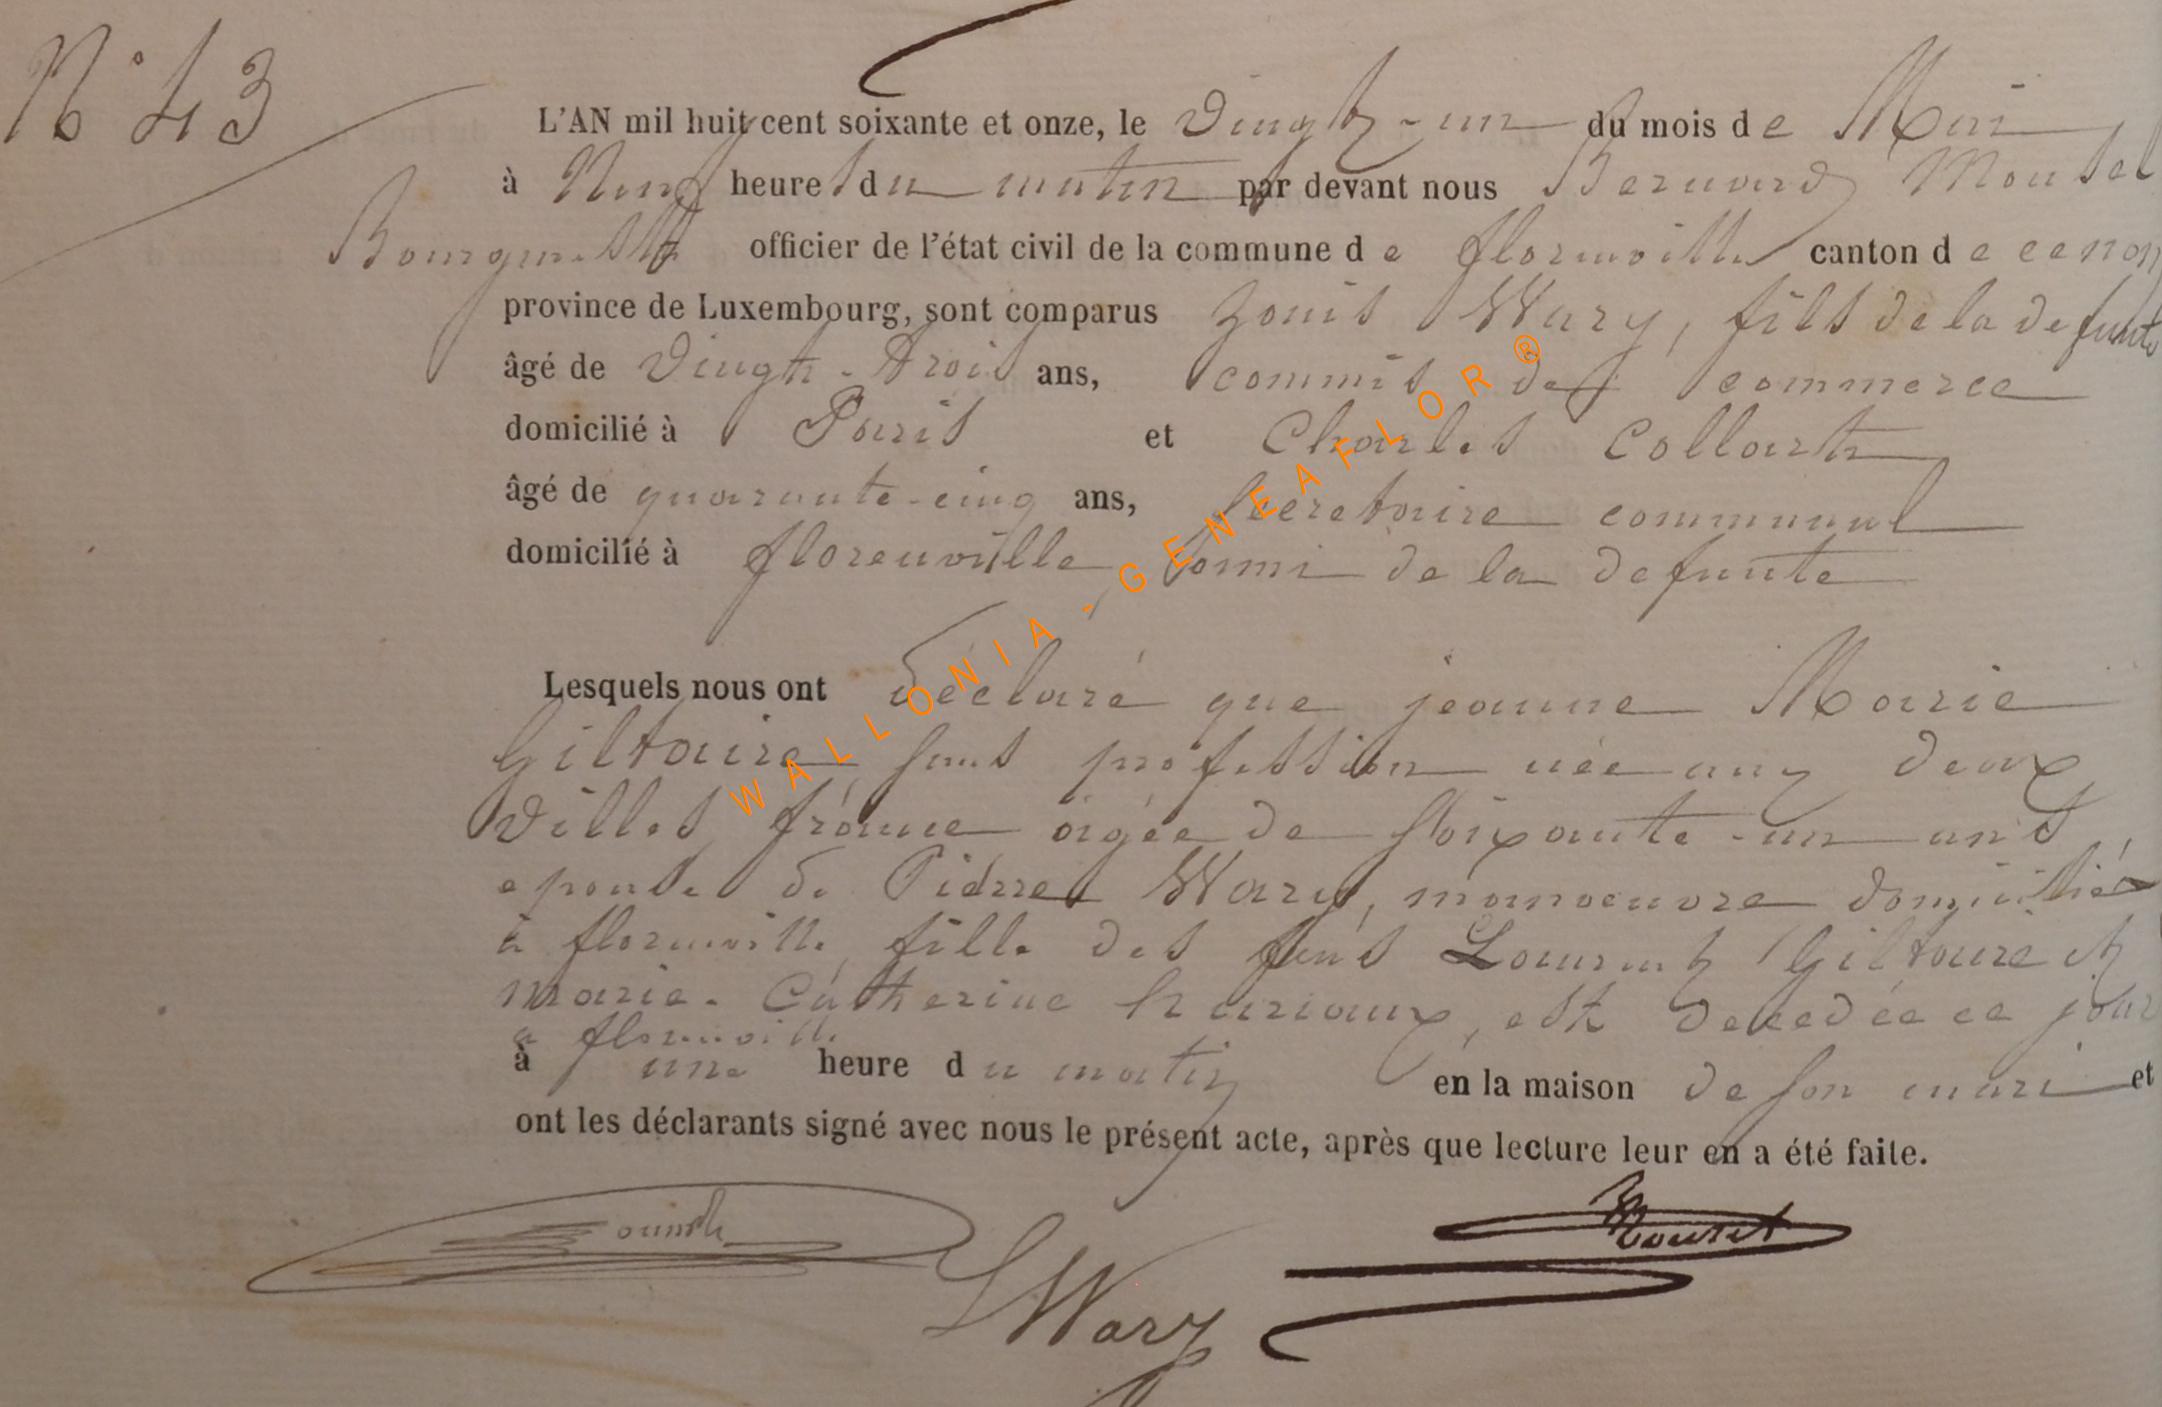 N° 43
L'AN mil huit cent soixante et onze, le Vingt-un du mois de Mai
à Neuf heures du matin par devant nous Bernard Mousel
Bourgmestre officier de l'état civil de la commune de florenville canton de ce nom
province de Luxembourg, sont comparus Louis Wary, fils de la defunte
âgé de Vingt-trois ans, commis de commerce
domicilié à Paris et Charles Collart
âgé de quarante-cinq ans, Secretaire communal
domicilié à florenville, ami de la defunte
Lesquels nous ont déclaré que jeanne Marie
Giltaire sans profession née aux deux
Villes, france âgée de Soixante-un ans
epouse de Pierre Wary, manoeuvre domiciliée
à florenville, fille des feus Laurent Giltaire et
marie-Catherine hariaux, est decedée ce jour
a florenville
à une heure du matin en la maison de son mari et
ont les déclarants signé avec nous le présent acte, après que lecture leur en a été faite.
LWary
WALLONIA-GENEAFLOR®